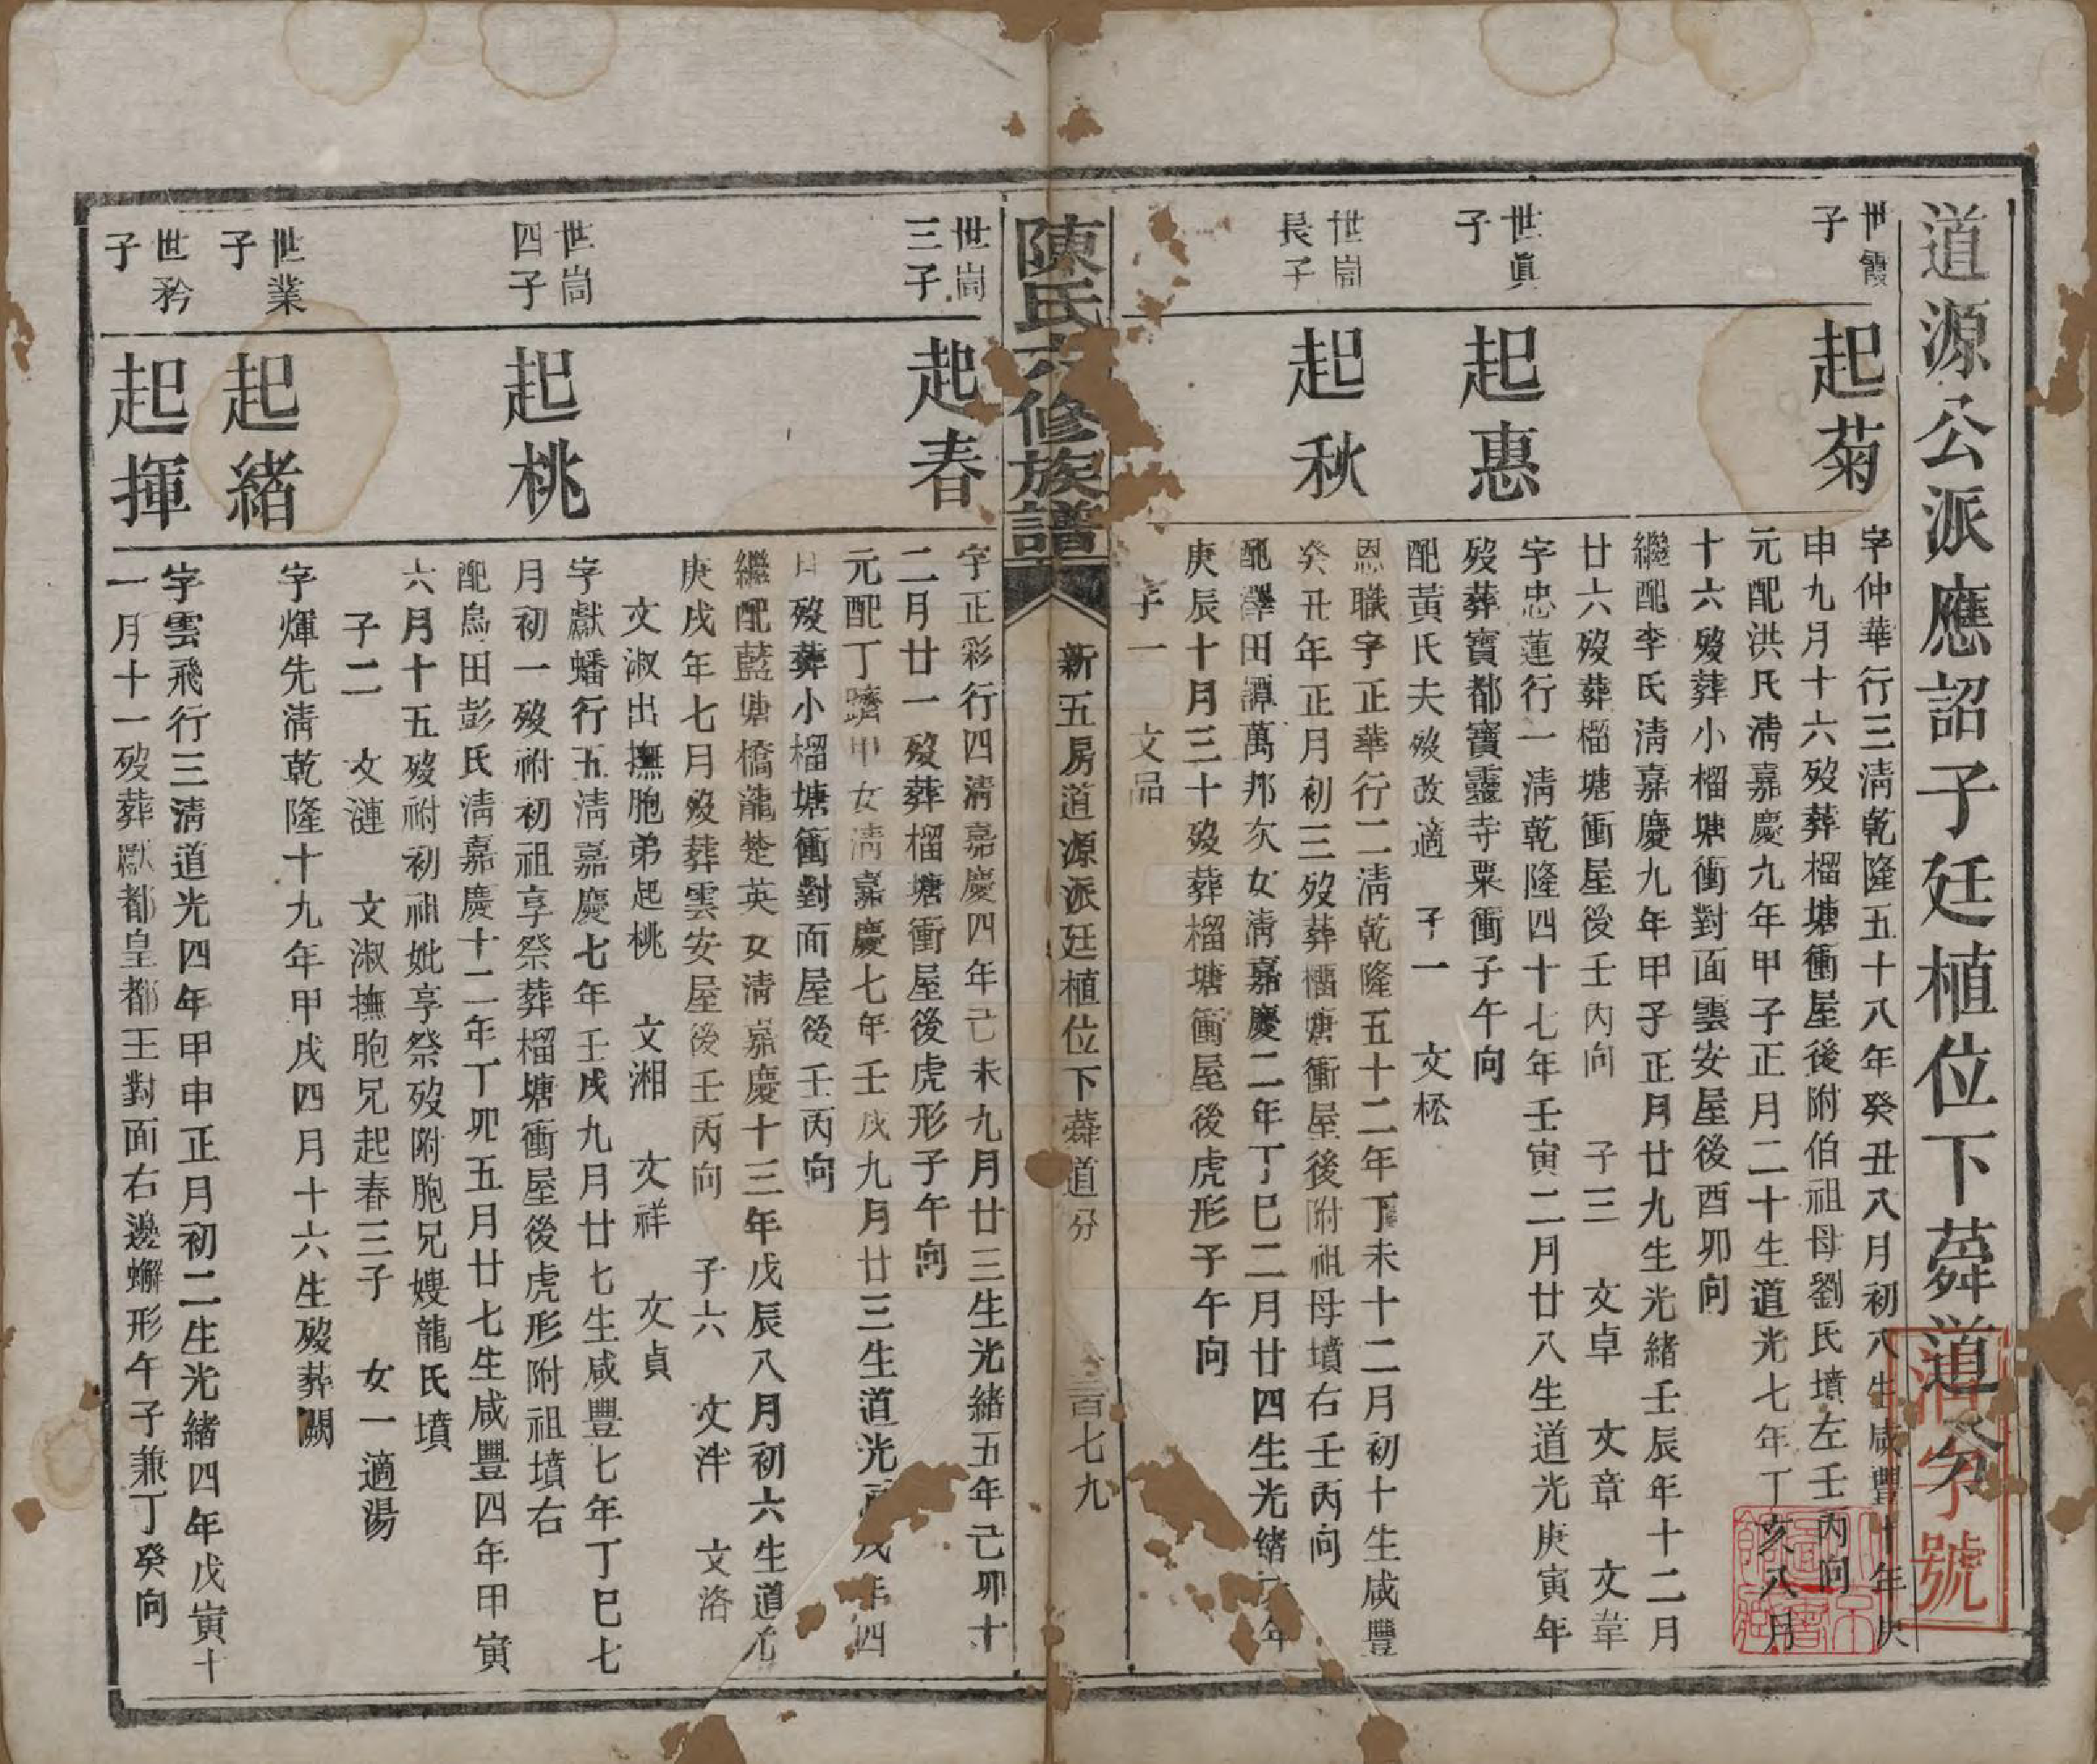 道源公派應詔子廷植位下蕣道分
世霞子
起菊
字仲華行三清乾隆五十八年癸丑八月初八生咸豐十年庚
申九月十六歿葬榴塘衝屋後附伯祖母劉氏墳左壬丙向
元配洪氏清嘉慶九年甲子正月二十生道光七年丁亥八月
十六歿葬小榴塘衝對面雲安屋後酉卯向
繼配李氏清嘉慶九年甲子正月廿九生光緒壬辰年十二月
廿六歿葬榴塘衝屋後壬丙向　子三　文卓　文章　文葦
世眞子
起惠
字忠蓮行一清乾隆四十七年壬寅二月廿八生道光庚寅年
歿葬寶都寶靈寺栗衝子午向
配黃氏夫歿改適　子一　文松
世崗長子
起秋
恩職字正華行二清乾隆五十二年丁未十二月初十生咸豐
癸丑年正月初三歿葬榴塘衝屋後附祖母墳右壬丙向
配澤田譚萬邦次女清嘉慶二年丁巳二月廿四生光緒六年
庚辰十月三十歿葬榴塘衝屋後虎形子午向
子一　文品
陳氏六修族譜
新五房道源派廷植位下蕣道分
三百七九
世崗三子
起春
字正彩行四清嘉慶四年己未九月廿三生光緒五年己卯十
二月廿一歿葬榴塘衝屋後虎形子午向
元配丁躋甲女清嘉慶七年壬戌九月廿三生道光戊年四
月歿葬小榴塘衝對面屋後壬丙向
繼配藍塘橋龍楚英女清嘉慶十三年戊辰八月初六生道光
庚戌年七月歿葬雲安屋後壬丙向　子六　文泮　文洛
文淑出撫胞弟起桃　文湘　文祥　文貞
世崗四子
起桃
字獻蟠行五清嘉慶七年壬戌九月廿七生咸豐七年丁巳七
月初一歿祔初祖享祭葬榴塘衝屋後虎形附祖墳右
配烏田彭氏清嘉慶十二年丁卯五月廿七生咸豐四年甲寅
六月十五歿祔初祖妣享祭歿附胞兄嫂龍氏墳
子二　文漣　文淑撫胞兄起春三子　女一適湯
世業子
起緒
字煇先清乾隆十九年甲戌四月十六生歿葬闕
世矜子
起揮
字雲飛行三清道光四年甲申正月初二生光緒四年戊寅十
一月十一歿葬獻都皇都王對面右邊蠏形午子兼丁癸向
字號